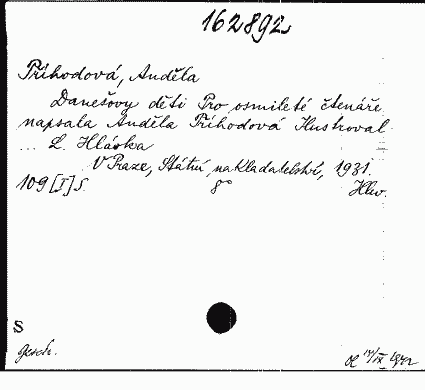 162892
Příhodová, Anděla
Danešovy děti Pro osmileté čtenáře
napsala Anděla Příhodová Ilustroval
... L. Hláska
V Praze, Státní nakladatelství, 1931.
109 [I] s. 8° Hlw.
S
Gesch.